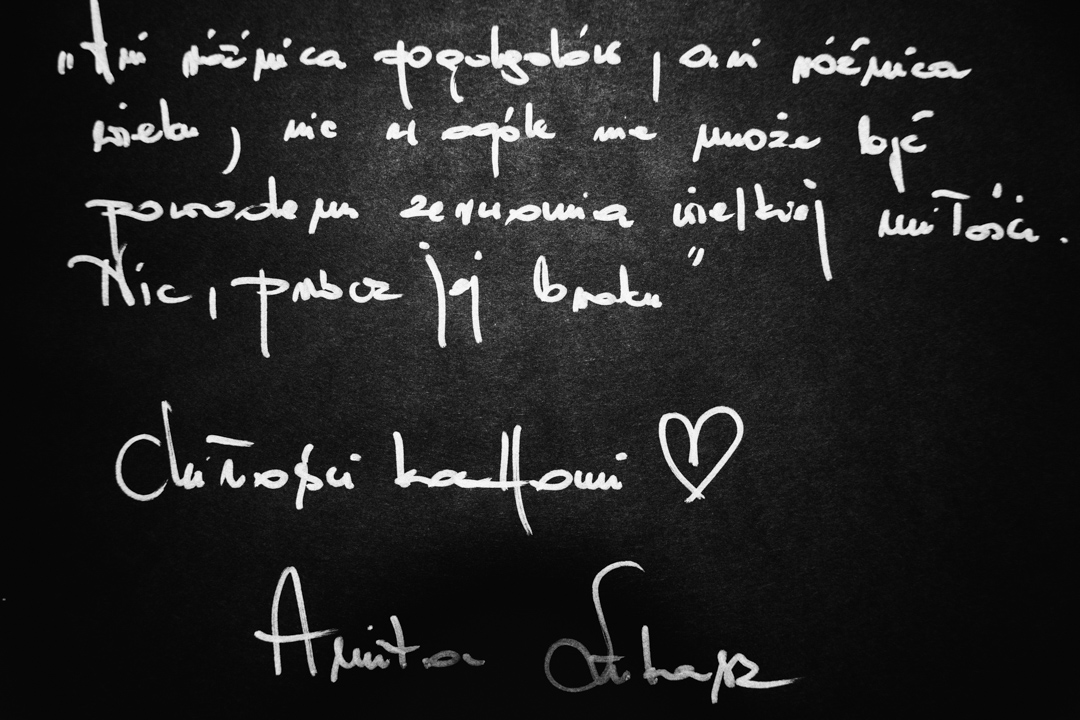 "Ani różnica poglądów, ani różnica
wieku, nic w ogóle nie może być
powodem zerwania wielkiej miłości.
Nic, prócz jej braku"
Miłości
Anita